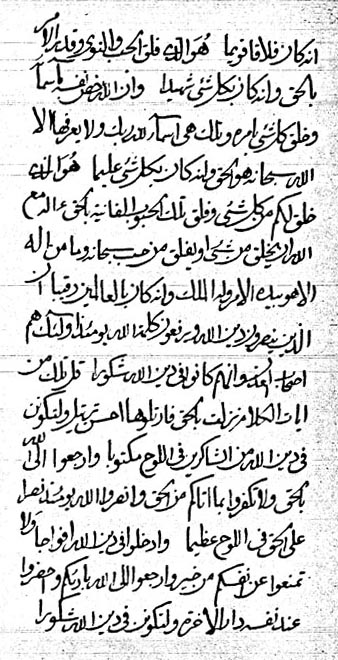 انه كان فلاقا قويما هو الذي فلق الحب والنوى وقدر الامر
بالحق وانه كان بكل شئ شهيدا وان الله خلق بقـ اسما
وخلق كل شئ بامره وتلك هي اسماء الله ربك ولا يعرفها الا
الله سبحانه هو الحق وانه كان بكل شئ عليما هو الذي
خلق لكم من كل شئ وفلق تلك الحبوب الفانيه بالحق ءاله مع
الله ان يخلق من شئ او يفلق من حب سبحانه وما من اله
الا هو بيده الامر وله الملك وانه كان بالعالمين رقيبا ان
الذين ينصرون دين الله ويرفعون كلمة الله يومئذ اولئك هم
اصحاب وانهم كانوا في دين الله شكورا قل تلك من
ايات الكلام نزلت بالحق فاتلوها احسن ترتيل ولتكونن
في دين الله من الشاكرين في اللوح مكتوبا وادعوا الى الله
بالحق ولا تكفروا بما اتاكم من الحق وانصروا الله يومئذ نصرا
على الحق في اللوح عظيما وادخلوا في دين الله افواجا ولا
تمنعوا عن انفسكم من خير وادعوا الى الله باديكم واحضروا
عند نفسه دار الاخرة ولتكونن في دين الله شكورا